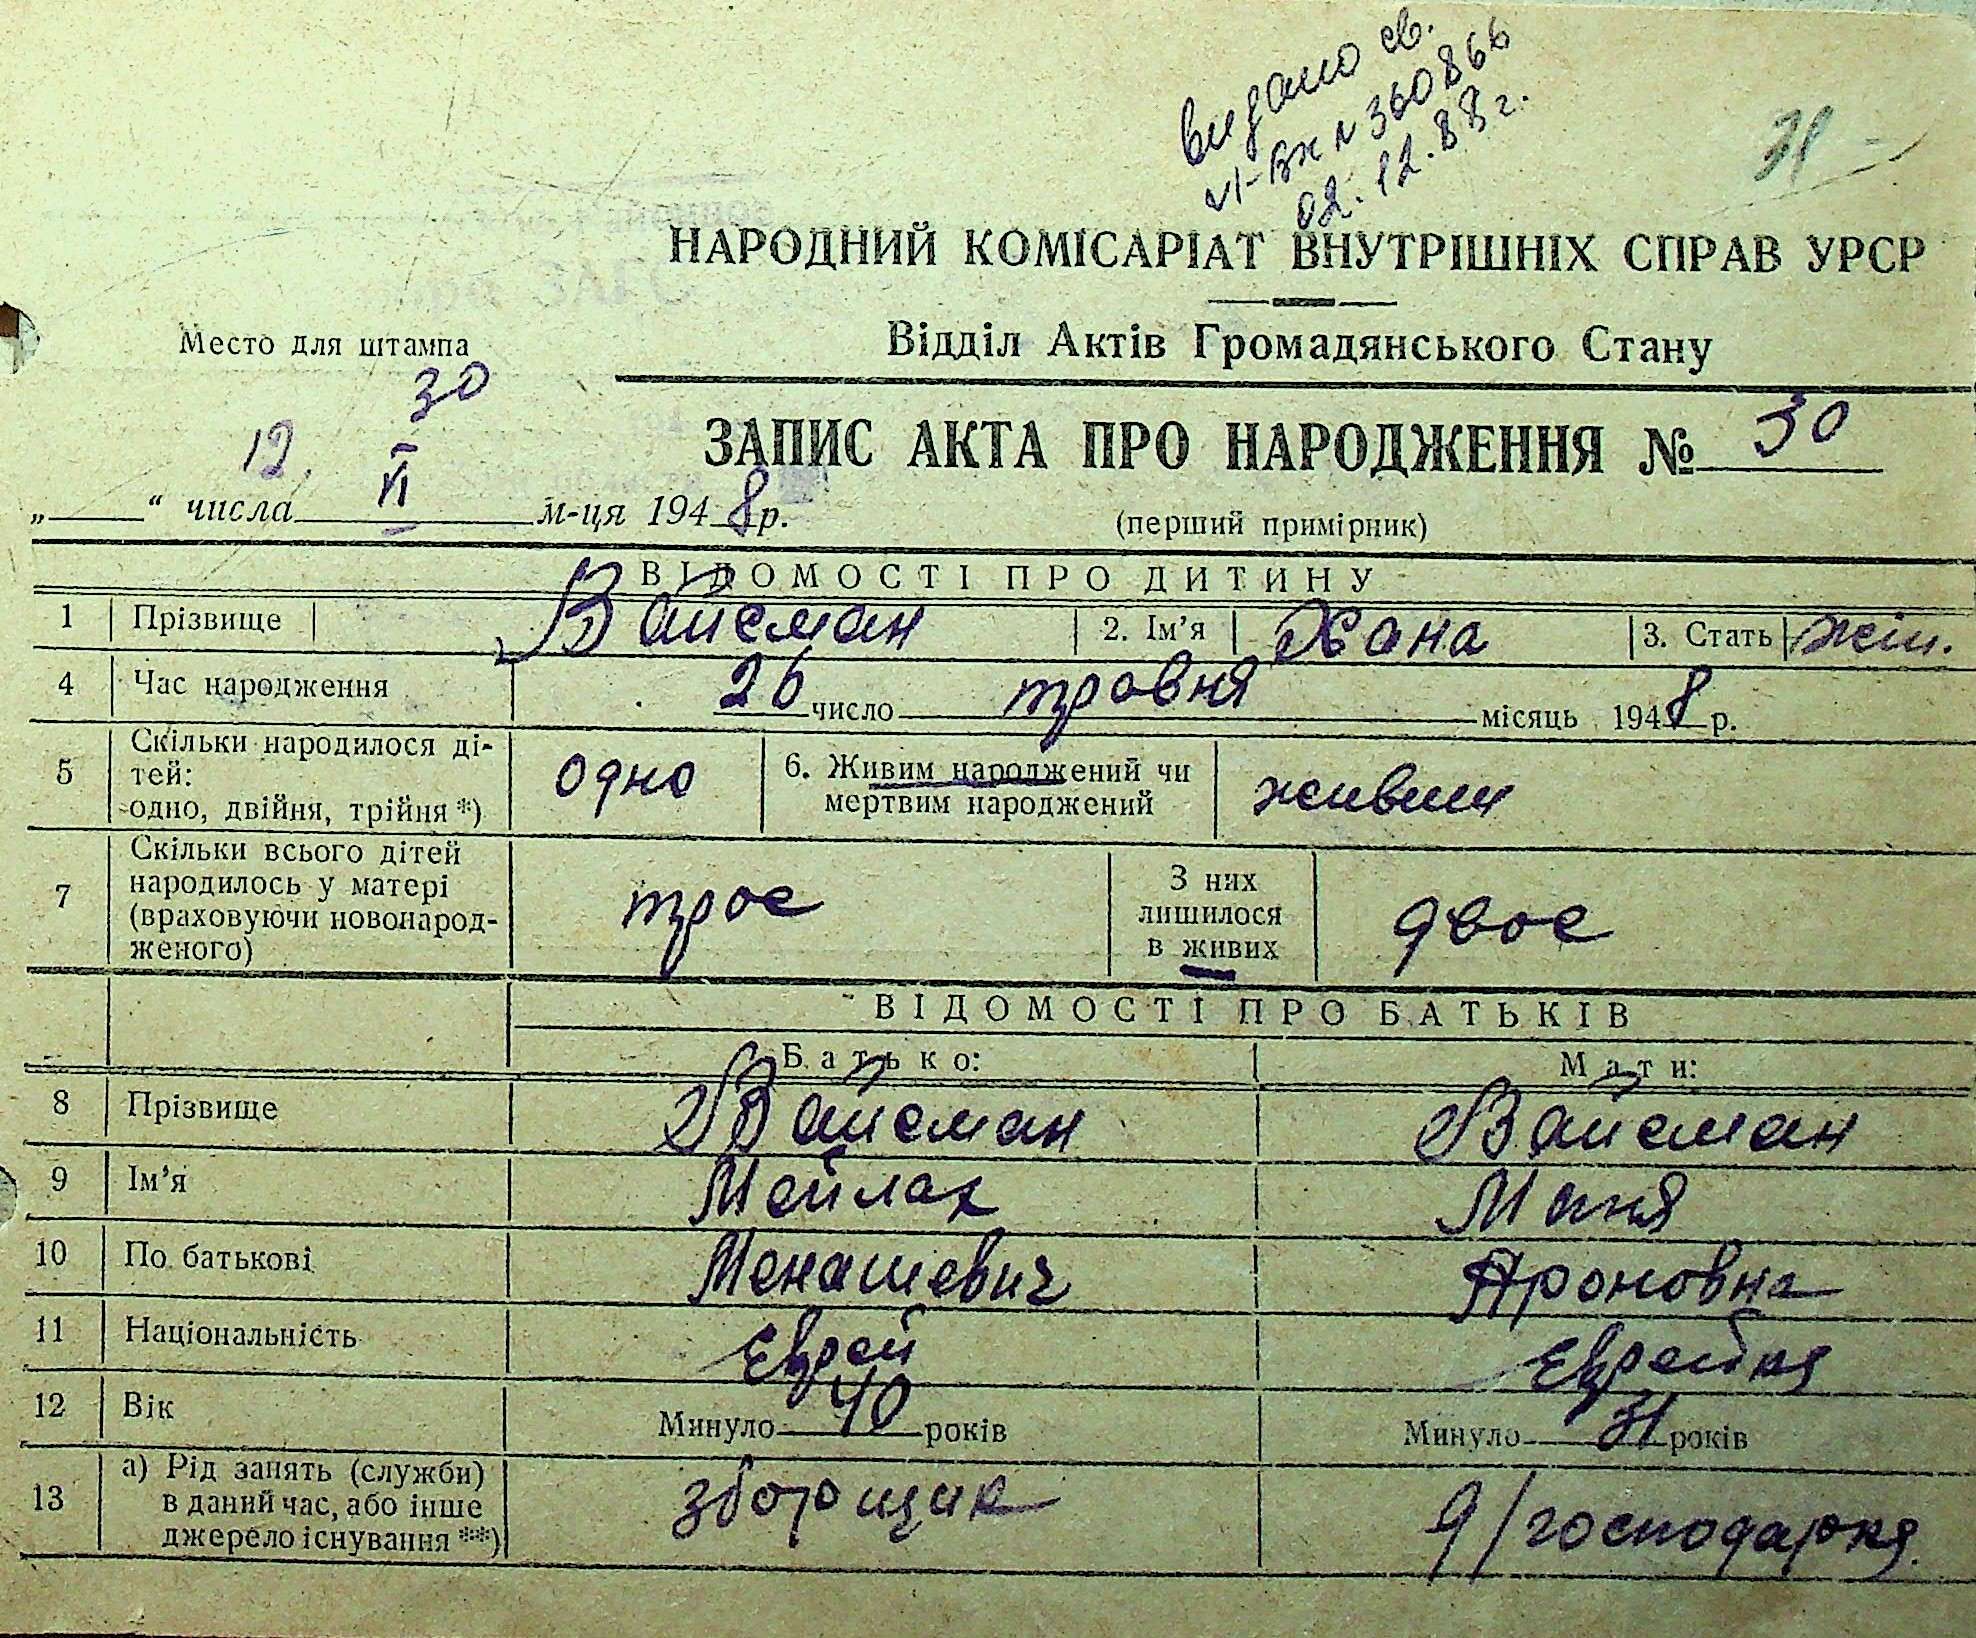 видано св.
VI-ВЖ № 360866
02.12.88 г.
31
НАРОДНИЙ КОМІСАРІАТ ВНУТРІШНІХ СПРАВ УРСР
Место для штампа
Відділ Актів Громадянського Стану
30
ЗАПИС АКТА ПРО НАРОДЖЕННЯ № 30
„12.“ числа VI м-ця 1948 р.
(перший примірник)
ВІДОМОСТІ ПРО ДИТИНУ
1 Прізвище Вайсман 2. Ім'я Хана 3. Стать жін.
4 Час народження 26 число травня місяць 1948 р.
5 Скільки народилося ді-
тей:
одно, двійня, трійня *) одно 6. Живим народжений чи
мертвим народжений живим
7 Скільки всього дітей
народилось у матері
(враховуючи новонарод-
женого) троє З них
лишилося
в живих двоє
ВІДОМОСТІ ПРО БАТЬКІВ
Батько: Мати:
8 Прізвище Вайсман Вайсман
9 Ім'я Мейлах Маня
10 По батькові Менашевич Ароновна
11 Національність Єврей Єврейка
12 Вік Минуло 40 років Минуло 31 років
13 а) Рід занять (служби)
в даний час, або інше
джерело існування **) зборщик д/господарка.